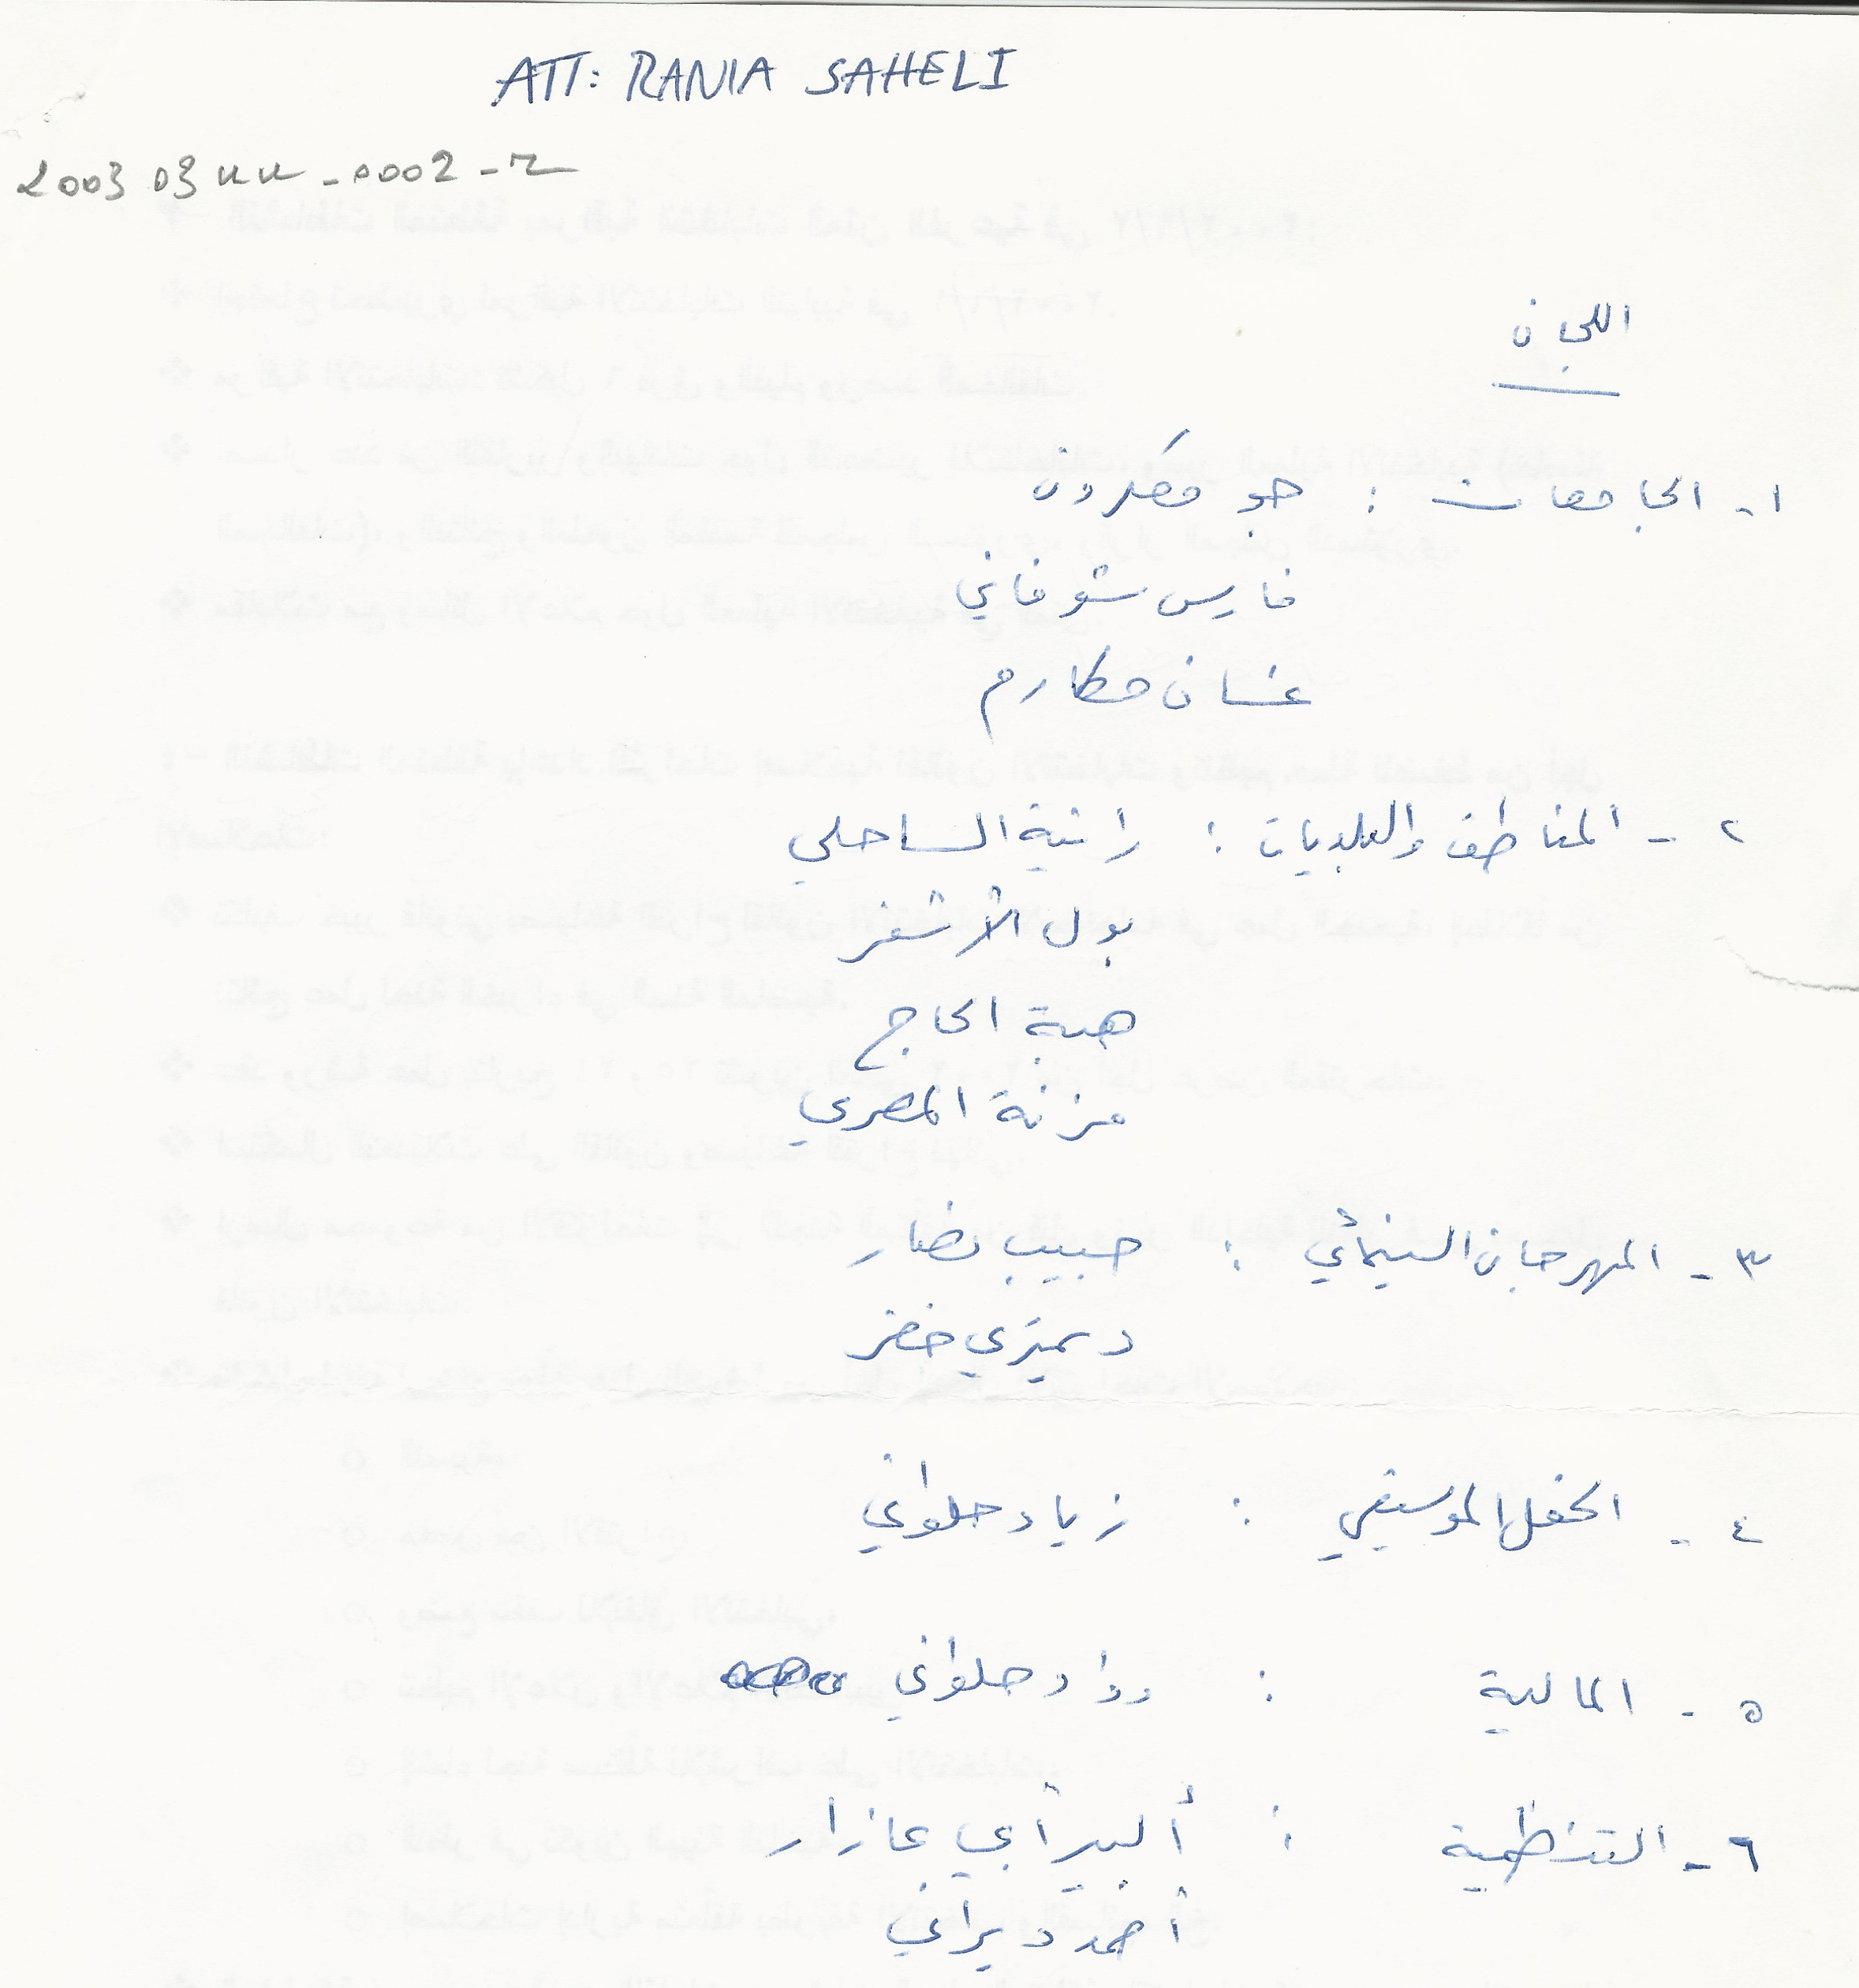 ATT: RANIA SAHELI
2003 03
اللجان
١- الجامعات : جو معكرون
فارس شوفاني
غسان مكارم
٢ - المناطق والبلديات : رانية الساحلي
بول الأشقر
هبة الحاج
مزنة المصري
٣ - المهرجان السينمائي : حبيب نصار
ديمتري خضر
٤ - الحفل الموسيقي : زياد حلواني
٥ - المالية : رواد حلواني
٦ - التنظيمية : ألبير أبي عازار
أحمد ديراني